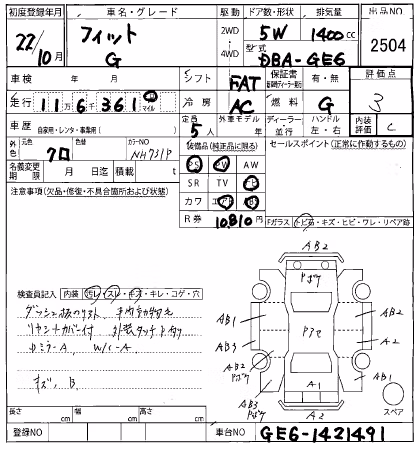 初度登録年月 車名・グレード 駆動 ドア数・形状 排気量 出品NO
22/10月 フィット G 2WD 4WD 5W 1400cc 2504
型式 DBA-GE6
車検 年 月 シフト FAT 保証書 有・無 評価点 3
走行 116千361 km マイル 冷房 AC 燃料 G
車歴 自家用・レンタ・事業用( ) 定員 5人 外車モデル 年 ディーラー 並行 ハンドル 左・右 内装評価 C
外色 元色 クロ 色替 カラーNO NH731P 装備品(純正品に限る) セールスポイント(正常に作動するもの)
PS PW AW
名義変更期限 月 日迄 積載 t SR TV ナビ
注意事項(欠品・修復・不具合箇所および状態) カワ エアB ABS
R券 10,810
Fガラス(トビ石・キズ・ヒビ・ワレ・リペア跡)
検査員記入 内装 汚レ・スレ・キズ・キレ・コゲ・穴
リヤシートカバー付
DミラーA、W/C-A
キズ、B
AB2
AB1 AB2
AB3 A2
AB2 AB1
A1
AB3 A2
スペア
長さ cm 幅 cm 高さ cm
登録NO 車台NO GE6-1421491